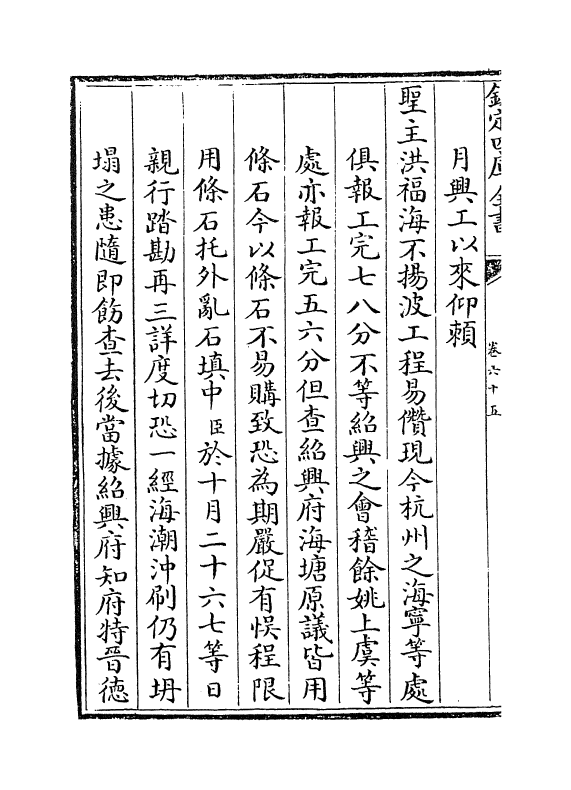 欽定四庫全書
卷六十五
月興工以來仰賴
聖主洪福海不揚波工程易儹現今杭州之海寧等處
俱報工完七八分不等紹興之會稽餘姚上虞等
處亦報工完五六分但查紹興府海塘原議皆用
條石今以條石不易購致恐為期嚴促有悞程限
用條石托外亂石填中臣於十月二十六七等日
親行踏勘再三詳度切恐一經海潮沖刷仍有坍
塌之患隨即飭查去後當據紹興府知府特晉德